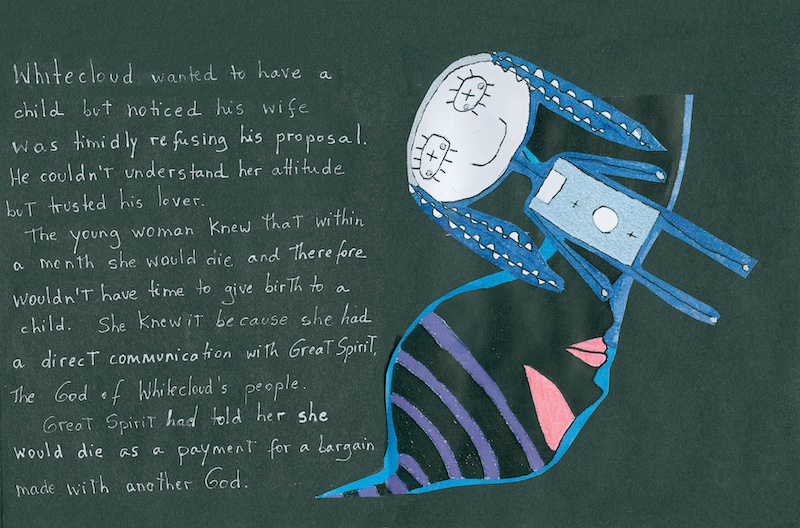 Whitecloud wanted to have a
child but noticed his wife
was timidly refusing his proposal.
He couldn't understand her attitude
but trusted his lover.
The young woman knew that within
a month she would die and therefore
wouldn't have time to give birth to a
child. She knew it because she had
a direct communication with Great Spirit,
the God of Whitecloud's people.
Great Spirit had told her she
would die as a payment for a bargain
made with another God.